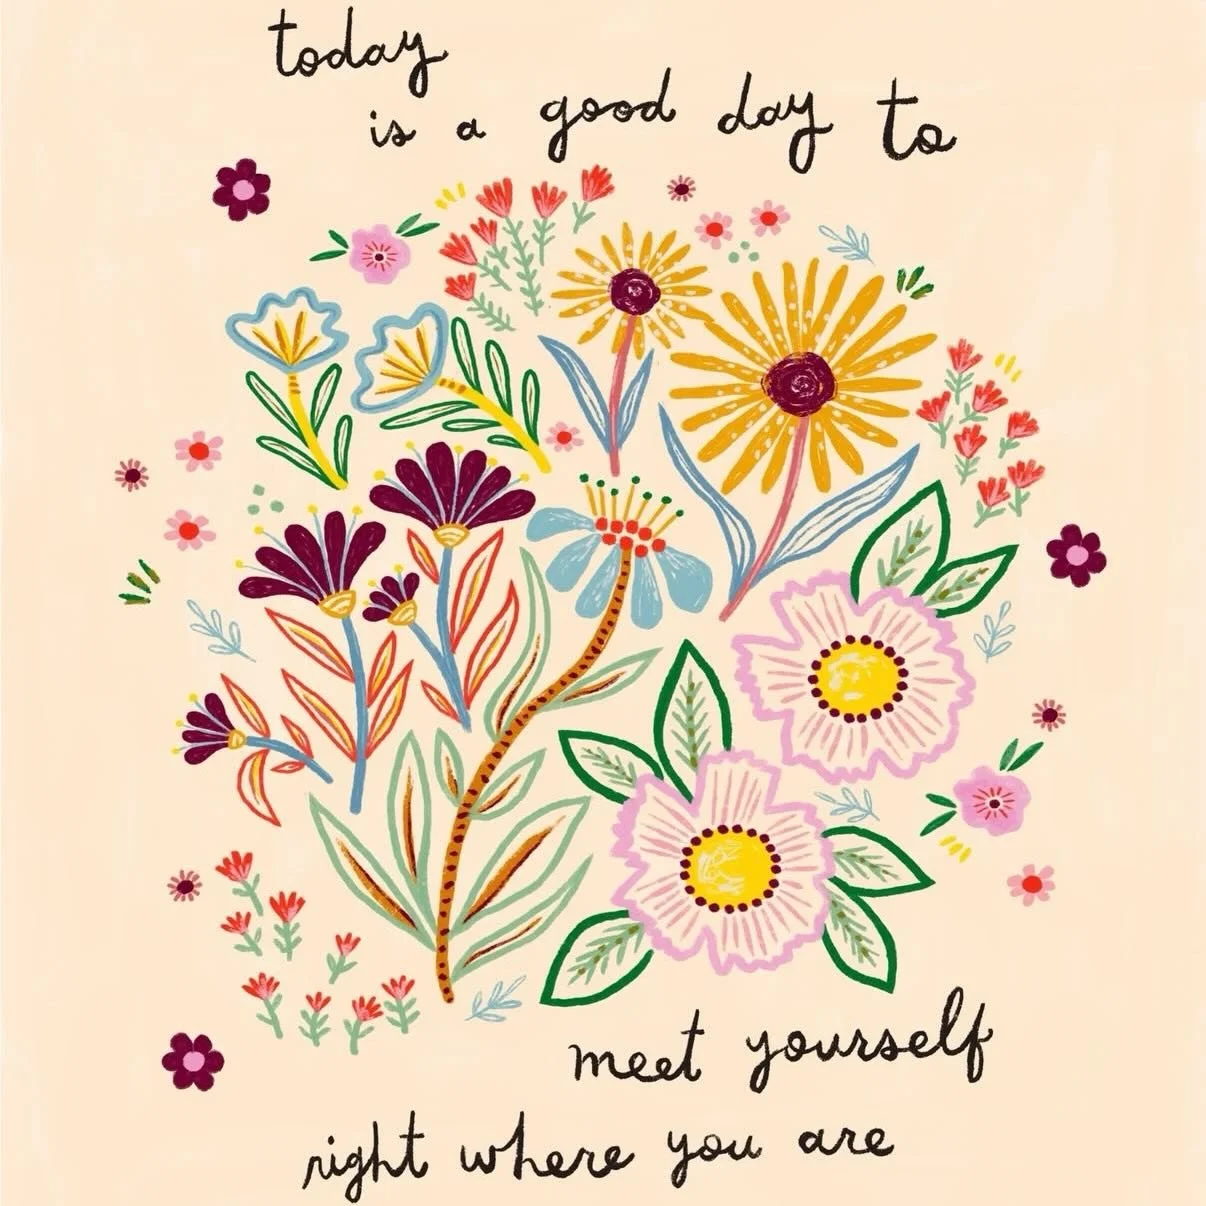 today
is a good day to
meet yourself
right where you are